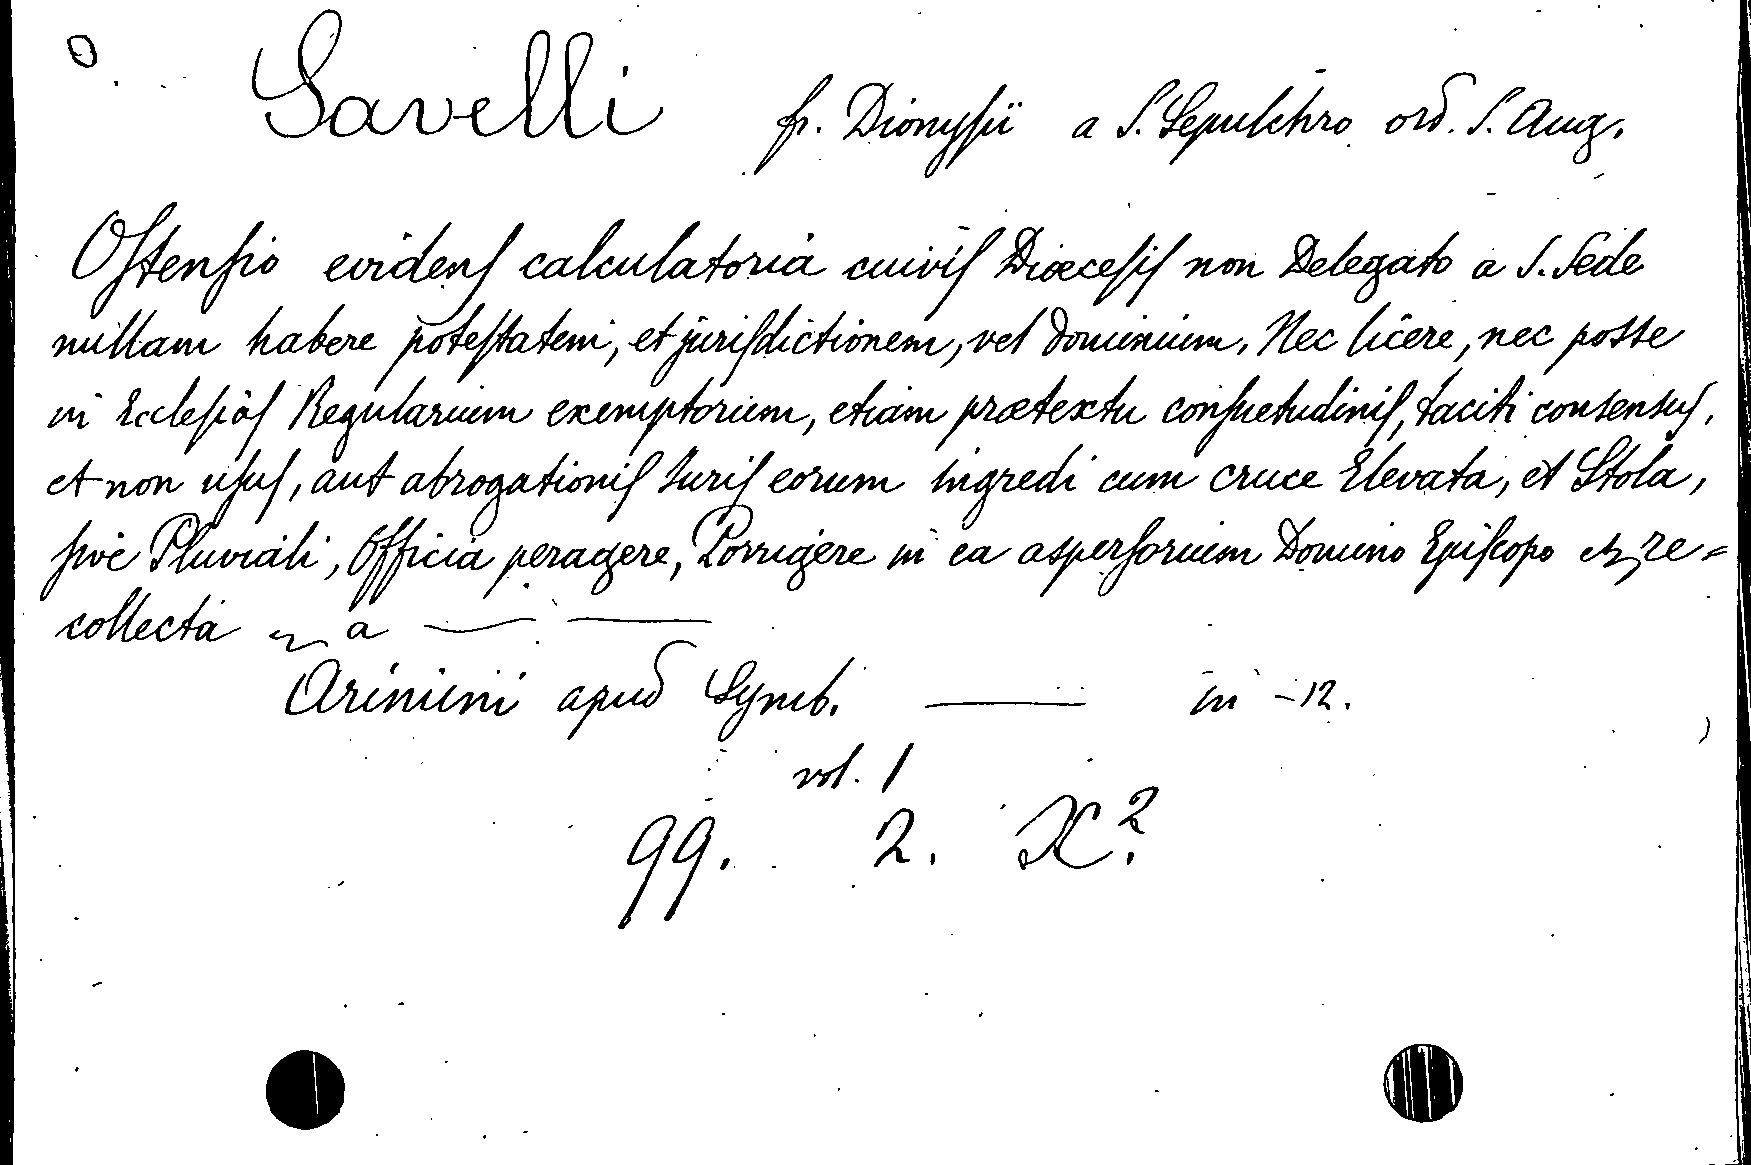 O
Savelli fr. Dionysii a S. Sepulchro ord. S. Aug.
Ostensio evidens calculatoria cuivis Diœcesis non Delegato a S. Sede
nullam habere potestatem, et jurisdictionem, vel dominium. Nec licere, nec posse
in Ecclesias Regularium exemptorum, etiam prætextu consuetudinis, taciti consensus,
et non usus, aut abrogationis Juris eorum ingredi cum cruce Elevata, et Stola,
sive Pluviali, Officia peragere, Porrigere in ea aspersorium Domino Episcopo re=
collecta a —
Arimini apud Symb. — in -12.
vol. 1
99. 2. X.²